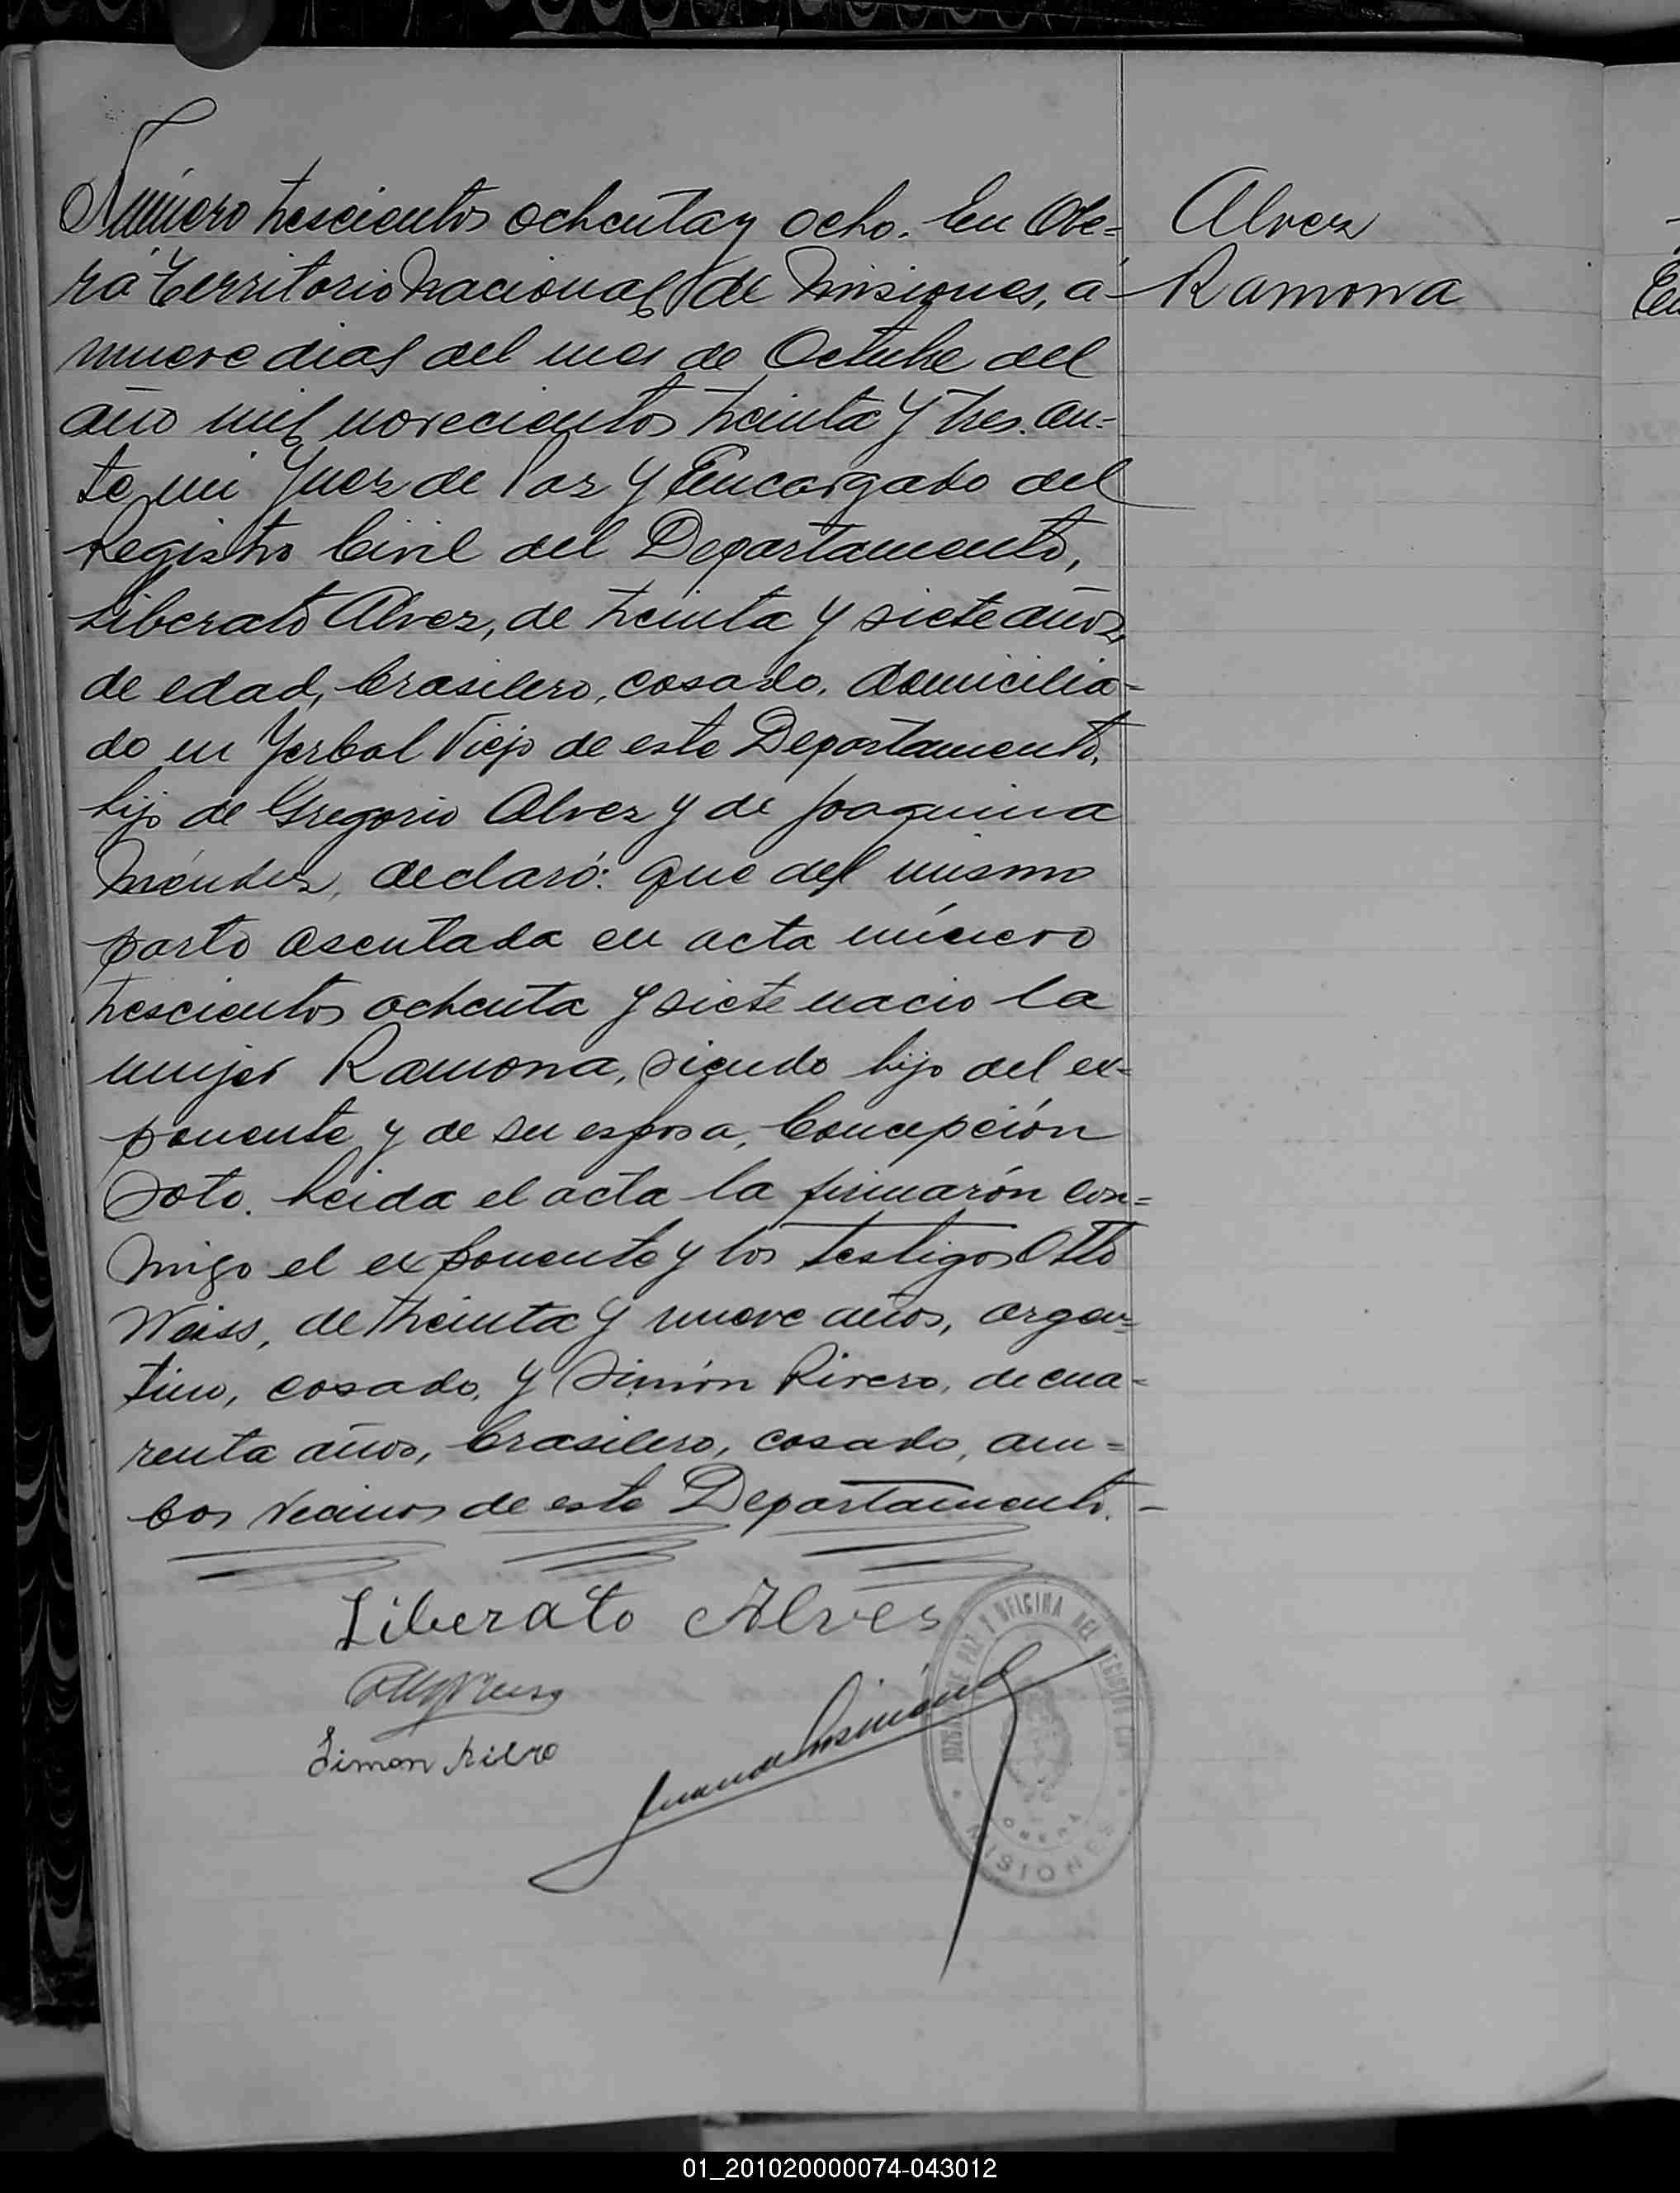 Número trescientos ochenta y ocho. En Obe=
rá Territorio Nacional de Misiones, á
nueve dias del mes de Octubre del
año mil novecientos treinta y tres. an=
te mi Juez de Paz y Encargado del
Registro Civil del Departamento,
Liberato Alvez, de treinta y siete años
de edad, brasilero, casado, domicilia-
do en Yerbal Viejo de este Departamento,
hijo de Gregorio Alvez y de Joaquina
Méndez, declaró: que del mismo
parto asentada en acta número
trescientos ochenta y siete nacio la
mujer Ramona, siendo hijo del ex=
ponente y de su esposa, Concepción
Soto. Leida el acta la firmarón con=
migo el exponente y los testigos Otto
Weiss, de treinta y nueve años, argen=
tino, casado, y Simón Rivero, de cua-
renta años, brasilero, casado, am=
bos vecinos de este Departamento. -
Alvez
Ramona
Liberato Alves
Simon
JUZGADO DE PAZ Y OFICINA DEL REGISTRO CIVIL
OBERA
MISIONES
01_201020000074-043012